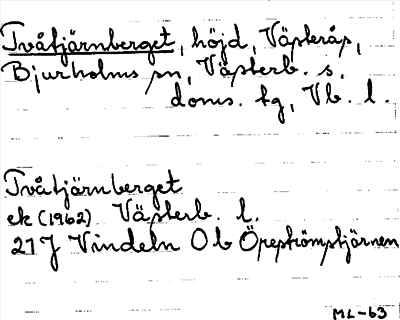 Tvåtjärnberget, höjd, Västerås,
Bjurholms sn, Västerb. s.
doms. tg, Vb. l.
Tvåtjärnberget
ek (1962) Västerb. l.
21 J Vindeln 0b Öreströmstjärnen
ML-63